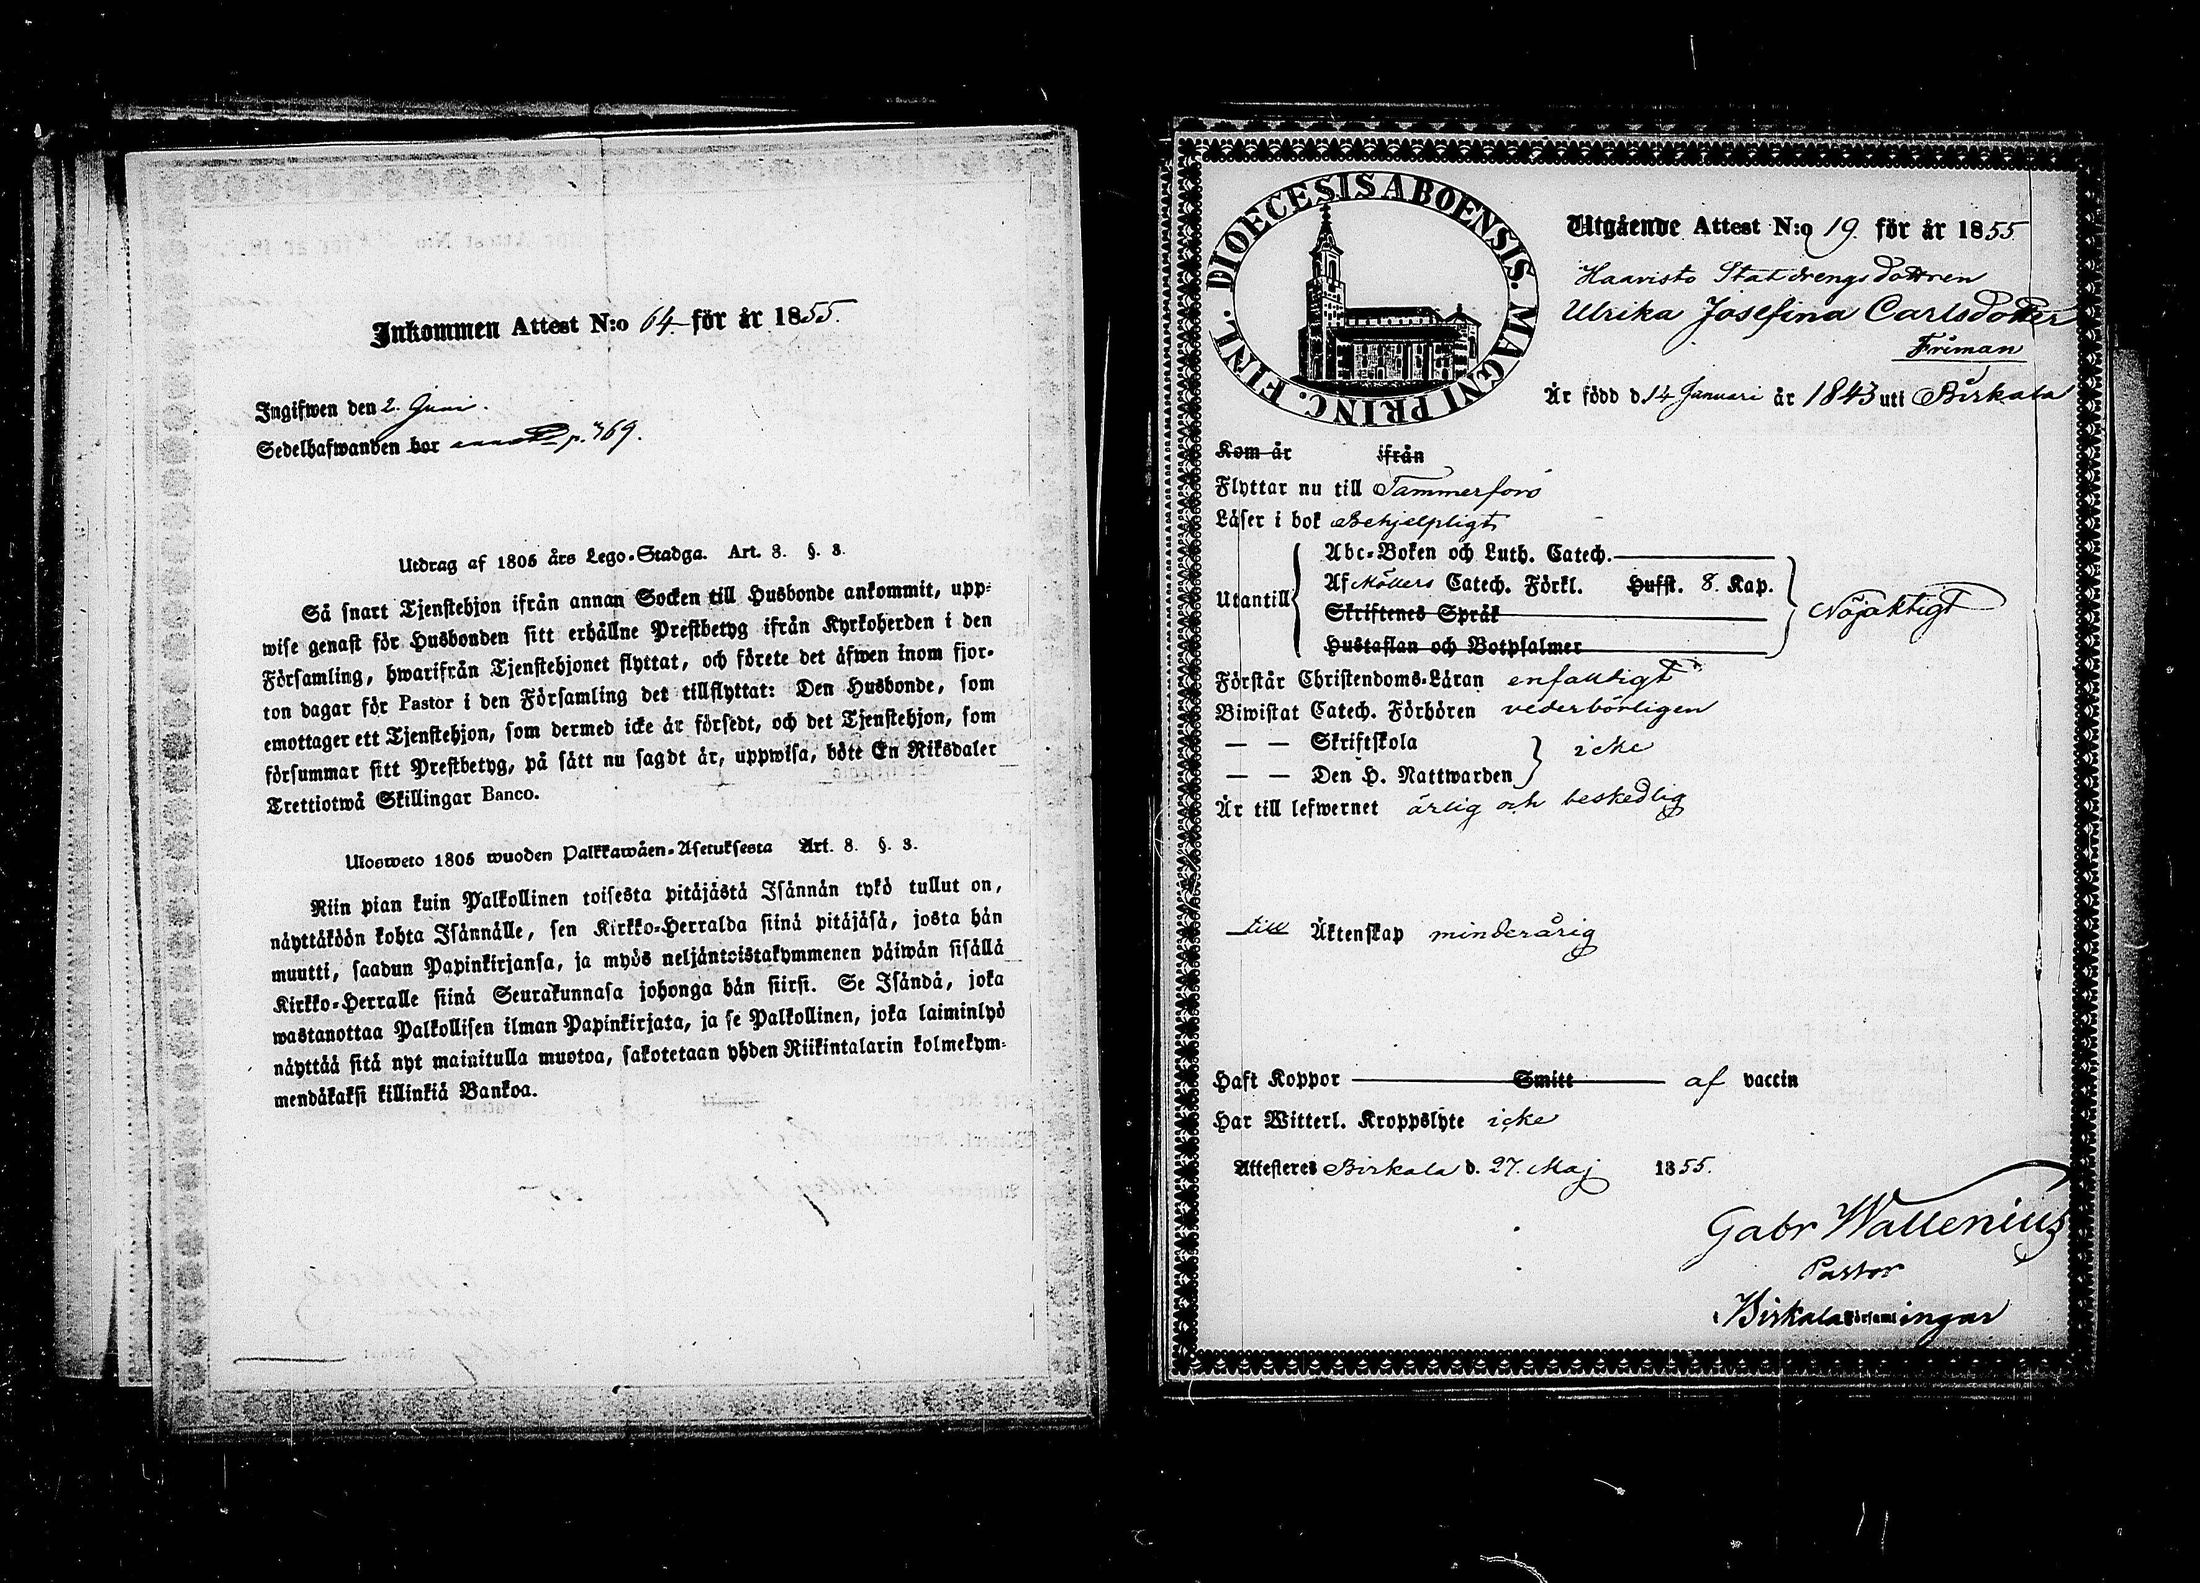 Inkommen Attest N:o 64 för år 1855.
Ingifwen den 2. Juni.
Sedelhafwanden bor p. 369.
Utdrag af 1805 års Lego-Stadga. Art. 8. §. 3.
Så snart Tjenstehjon ifrån annan Socken till Husbonde ankommit, upp-
wise genast för Husbonden sitt erhållne Prestbetyg ifrån Kyrkoherden i den
Församling, hwarifrån Tjenstehjonet flyttat, och förete det äfwen inom fjor-
ton dagar för Pastor i den Församling det tillflyttat: Den Husbonde, som
emottager ett Tjenstehjon, som dermed icke är försedt, och det Tjenstehjon, som
försummar sitt Prestbetyg, på sätt nu sagdt är, uppwisa, böte En Riksdaler
Trettiotwå Skillingar Banco.
Ulosweto 1805 wuoden Palkkawäen-Asetuksesta Art. 8. §. 3.
Niin pian kuin Palkollinen toisesta pitäjästä Isännän tykö tullut on,
näyttäköön kohta Isännälle, sen Kirkko-Herralda siinä pitäjäsä, josta hän
muutti, saadun Papinkirjansa, ja myös neljäntoistakymmenen päiwän sisällä
Kirkko-Herralle siinä Seurakunnasa johonga hän siirsi. Se Isändä, joka
wastanottaa Palkollisen ilman Papinkirjata, ja se Palkollinen, joka laiminlyö
näyttää sitä nyt mainitulla muotoa, sakotetaan yhden Riikintalarin kolmekym-
mendäkaksi killinkiä Bankoa.
DIOECESIS ABOENSIS. MAGNI PRINC. FINL.
Utgående Attest N:o 19. för år 1855
Haavisto Statdrengsdottren
Ulrika Josefina Carlsdotter
Friman
Är född d. 14 Januari år 1843 uti Birkala
Kom år ifrån
Flyttar nu till Tammerfors
Läser i bok Behjelpligt
Abc-Boken och Luth. Catech.
Utantill Af Möllers Catech. Förkl. Hufst. 8. Kap. Nöjaktigt
Skriftenes Språk
Hustaflan och Botpsalmer
Förstår Christendoms-Läran enfaldigt
Biwistat Catech. Förhören vederbörligen
— — Skriftskola icke
— — Den H. Nattwarden
Är till lefwernet ärlig och beskedlig
till Äktenskap minderårig
Haft Koppor Smitt af vaccin
Har Witterl. Kroppslyte icke
Attesteres Birkala d. 27. Maj 1855.
Gabr Wallenius
Pastor
Birkala församlingar